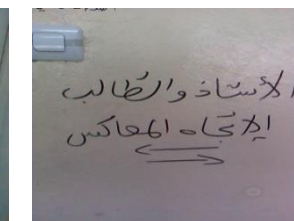 الأستاذ والطالب
الاتجاه المعاكس